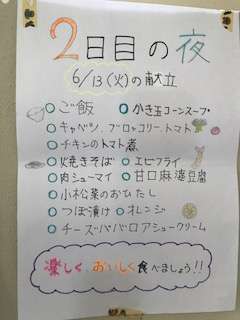 2日目の夜
6/13(火)の献立
○ご飯 ○かき玉コーンスープ
○キャベツ、ブロッコリー、トマト
○チキンのトマト煮
○焼きそば ○エビフライ
○肉シューマイ ○甘口麻婆豆腐
○小松菜のおひたし
○つぼ漬け ○オレンジ
○チーズババロアシュークリーム
楽しくおいしく食べましょう!!